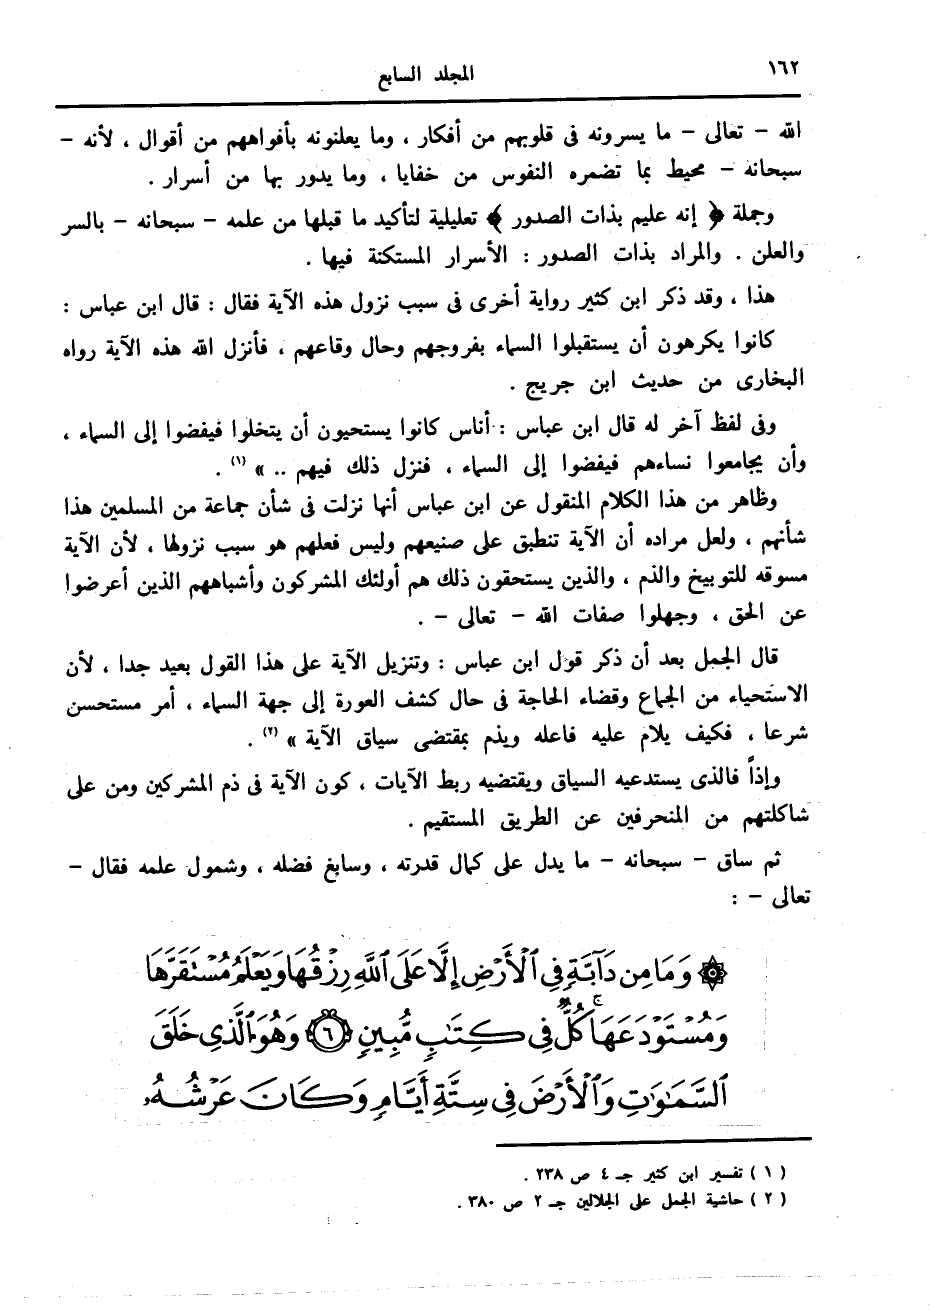 ١٦٢
المجلد السابع
الله – تعالى – ما يسرونه فى قلوبهم من أفكار ، وما يعلنونه بأفواههم من أقوال ، لأنه –
سبحانه – محيط بما تضمره النفوس من خفايا ، وما يدور بها من أسرار .
وجملة ﴿ إنه عليم بذات الصدور ﴾ تعليلية لتأكيد ما قبلها من علمه – سبحانه – بالسر
والعلن . والمراد بذات الصدور : الأسرار المستكنة فيها .
هذا ، وقد ذكر ابن كثير رواية أخرى فى سبب نزول هذه الآية فقال : قال ابن عباس :
كانوا يكرهون أن يستقبلوا السماء بفروجهم وحال وقاعهم ، فأنزل الله هذه الآية رواه
البخارى من حديث ابن جريج .
وفى لفظ آخر له قال ابن عباس : أناس كانوا يستحيون أن يتخلوا فيفضوا إلى السماء ،
وأن يجامعوا نساءهم فيفضوا إلى السماء ، فنزل ذلك فيهم .. » (١) .
وظاهر من هذا الكلام المنقول عن ابن عباس أنها نزلت فى شأن جماعة من المسلمين هذا
شأنهم ، ولعل مراده أن الآية تنطبق على صنيعهم وليس فعلهم هو سبب نزولها ، لأن الآية
مسوقه للتوبيخ والذم ، والذين يستحقون ذلك هم أولئك المشركون وأشباههم الذين أعرضوا
عن الحق ، وجهلوا صفات الله – تعالى – .
قال الجمل بعد أن ذكر قول ابن عباس : وتنزيل الآية على هذا القول بعيد جدا ، لأن
الاستحياء من الجماع وقضاء الحاجة فى حال كشف العورة إلى جهة السماء ، أمر مستحسن
شرعا ، فكيف يلام عليه فاعله ويذم بمقتضى سياق الآية » (٢) .
وإذاً فالذى يستدعيه السياق ويقتضيه ربط الآيات ، كون الآية فى ذم المشركين ومن على
شاكلتهم من المنحرفين عن الطريق المستقيم .
ثم ساق – سبحانه – ما يدل على كمال قدرته ، وسابغ فضله ، وشمول علمه فقال –
تعالى – :
۞ وَمَا مِن دَآبَّةٍ فِي ٱلْأَرْضِ إِلَّا عَلَى ٱللَّهِ رِزْقُهَا وَيَعْلَمُ مُسْتَقَرَّهَا
وَمُسْتَوْدَعَهَا ۚ كُلٌّ فِي كِتَٰبٍ مُّبِينٍ ٦ وَهُوَ ٱلَّذِي خَلَقَ
ٱلسَّمَٰوَٰتِ وَٱلْأَرْضَ فِي سِتَّةِ أَيَّامٍ وَكَانَ عَرْشُهُۥ
( ١ ) تفسير ابن كثير جـ ٤ ص ٢٣٨ .
( ٢ ) حاشية الجمل على الجلالين جـ ٢ ص ٣٨٠ .